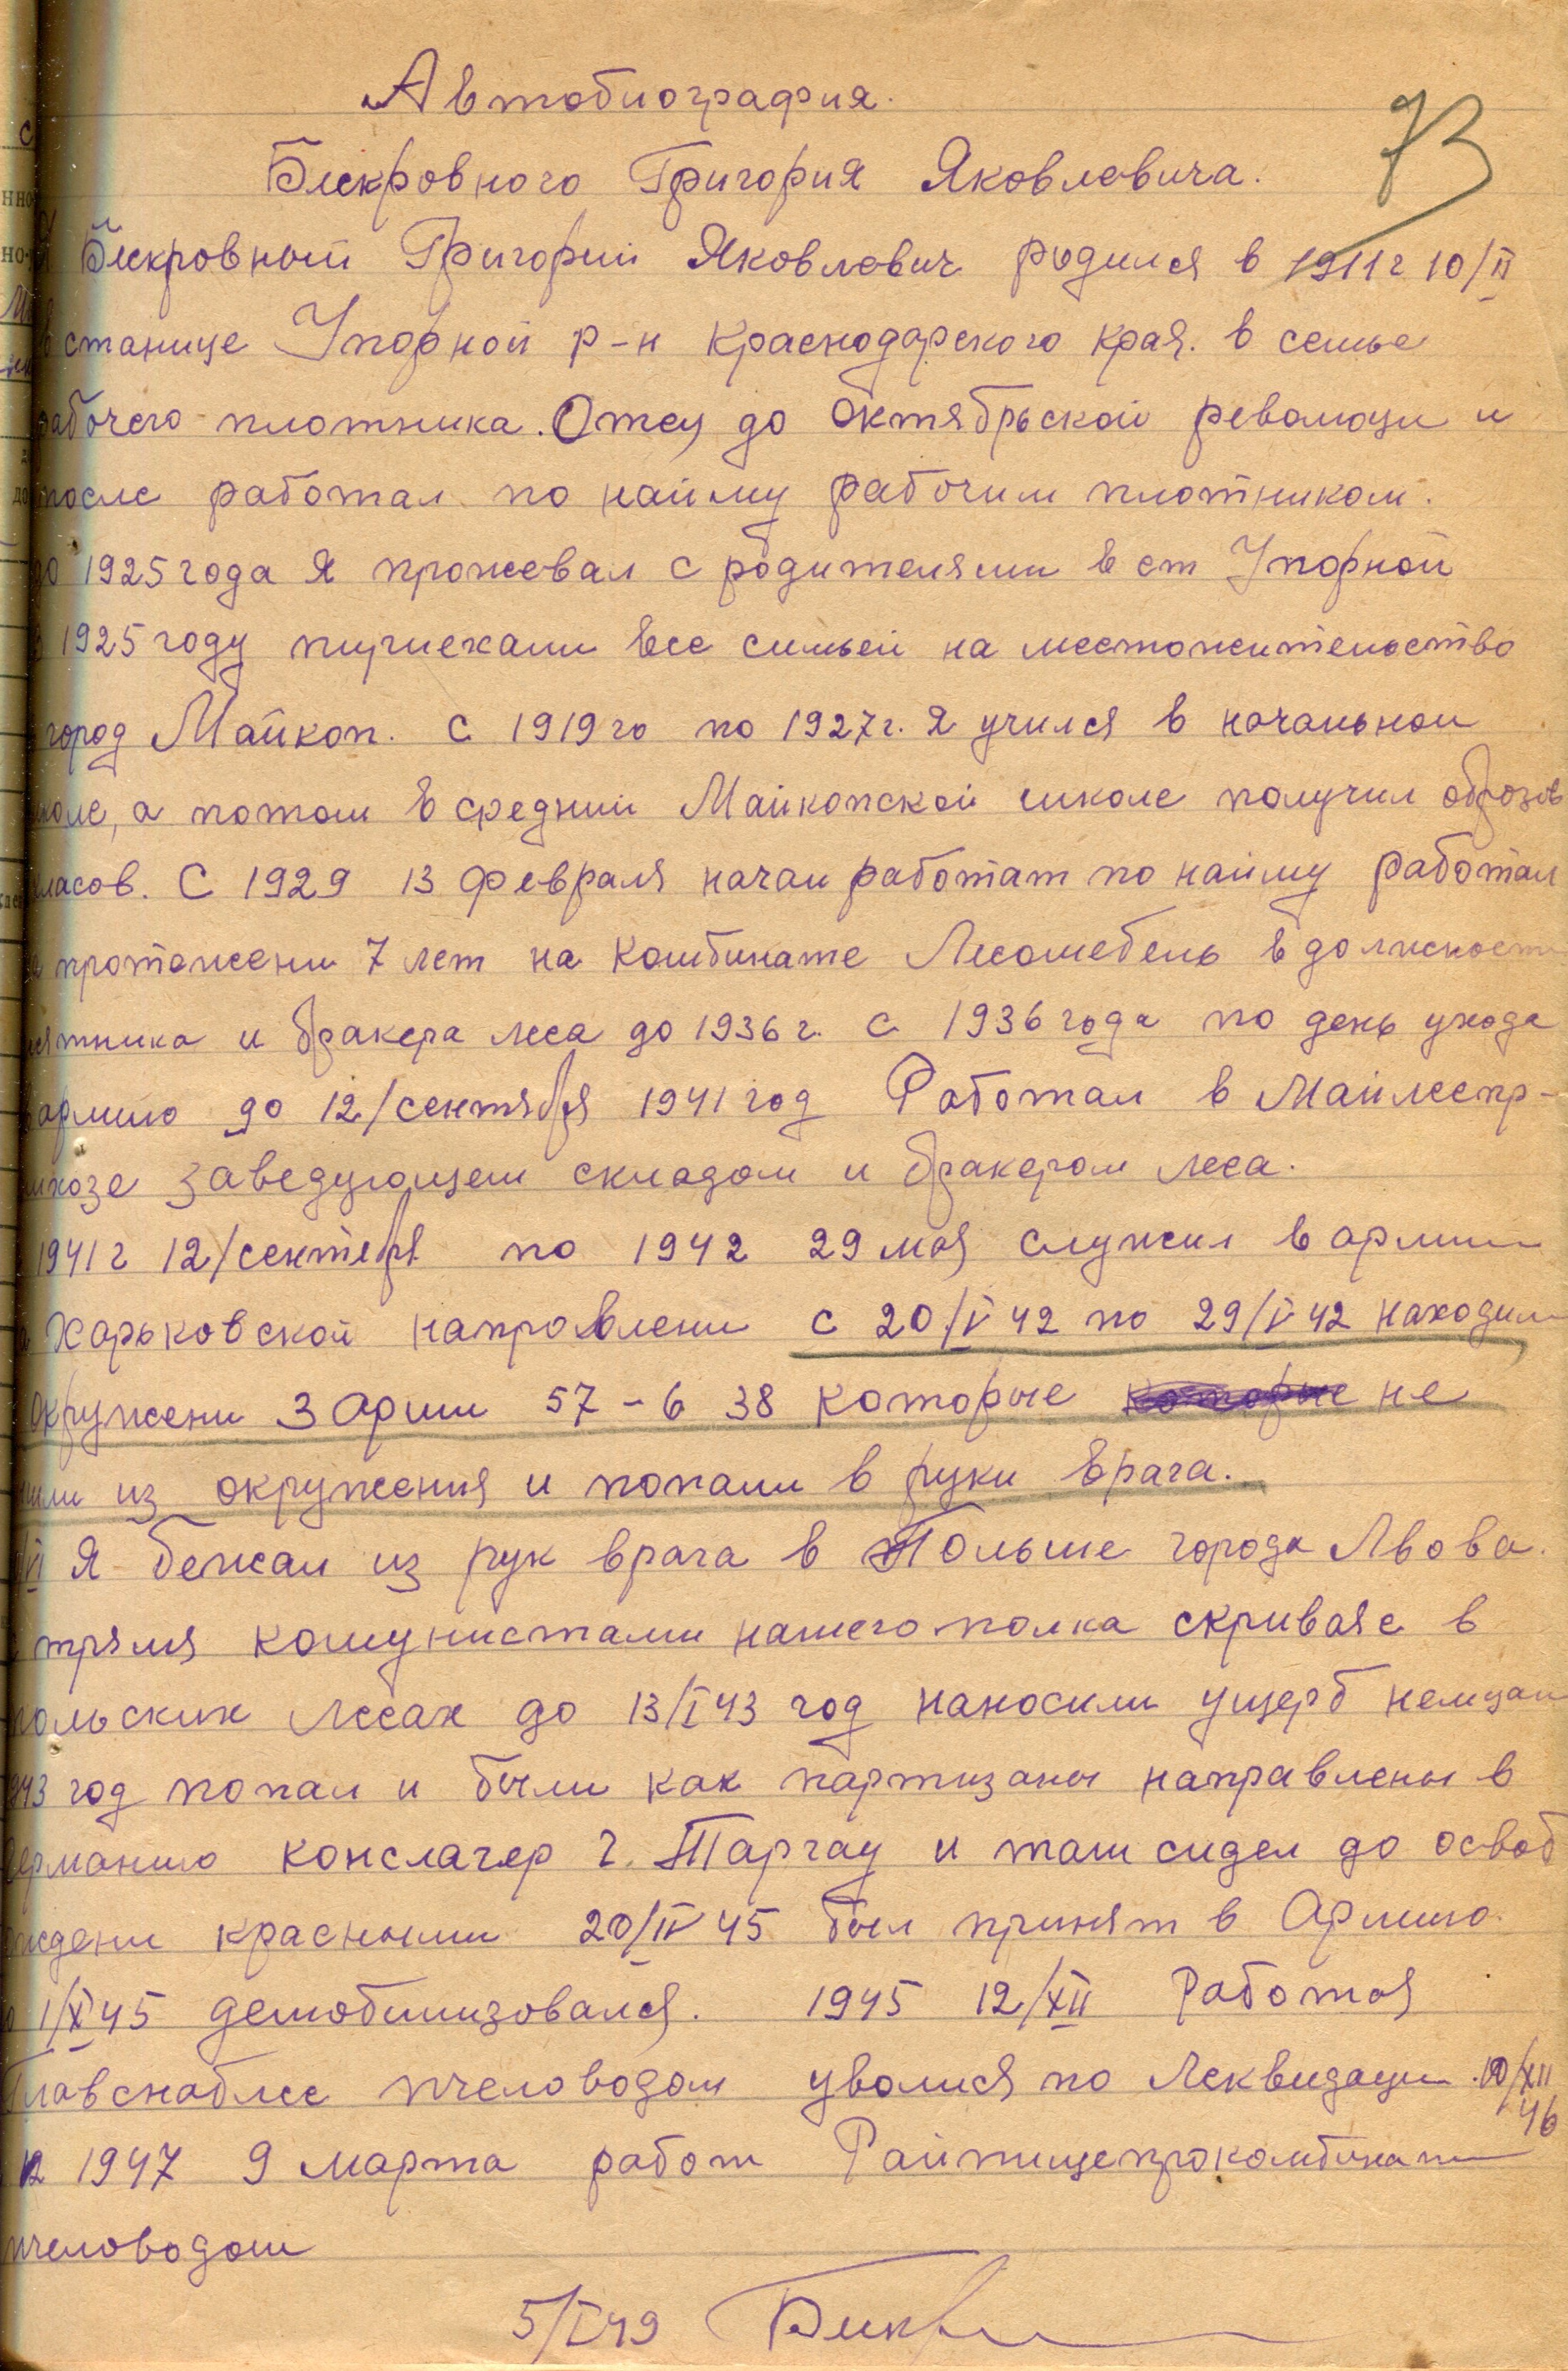 73
Автобиография.
Бескровного Григория Яковлевича.
Бескровный Григорий Яковлевич родился в 1911г 10/II
станице Упорной р-н Краснодарского края. в семье
рабочего плотника. Отец до Октябрьской револющи и
после работал по найму рабочим плотником.
до 1925 года я прожевал с родителями в ст Упорной
1925 году пириехали все симьей на местожительство
город Майкоп. С 1919 го по 1927г. я учился в начальной
школе, а потом в средний Майкопской школе получил образов
класов. С 1929 13 февраля начал работат по найму работал
протежени 7 лет на комбинате Лесомебель в должности
и бракера леса до 1936г. с 1936 года по день ухода
армию до 12/сентября 1941 год Работал в Майлеспр-
мхозе заведующем складом и бракером леса.
1941г 12/сентебря по 1942 29 мая служил в армии
Харьковской направлени с 20/V 42 по 29/V 42 находил
окружени 3 арми 57-6 38 которые которые не
из окружения и попали в руки врага.
VI я бежал из рук врага в Польше города Львова.
тремя комунистами нашего полка скриваяс в
польских лесах до 13/I 43 год наносили ущерб немцам
943 год попал и были как партизаны направлены в
Германию конслагер г. Таргау и там сидел до освоб
ждени красными 20/IV 45 был принят в Армию.
1/X 45 демобилизовался. 1945 12/XII Работая
Главснаблес пчеловодом уволися по Лекведаци. 10/XII
46
1947 9 марта работ Райпищепрокомбинат
пчеловодом
5/I 49